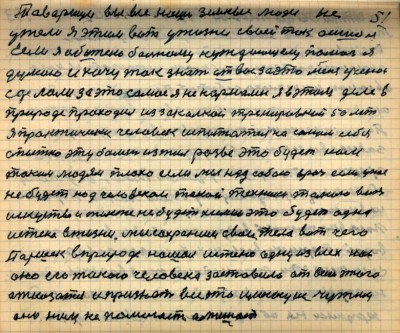 Таварищи вы все наши земныи люди не 51
ужели я этим вот ужизни своей так ошибся
если я аботено балному нуждающему помог я
думаю и хочу так знать от вас за это меня ученаи
сделали за это самае я не нармален я в этим деле в
природе праходил из закалкой тренировкай 50 лет
я практически человек испытател на самим себе
стытно эту балезн изжил разве это будет нам
таким людям плохо если мы над сабою врач если уже
не будет над человеком такой техники такого
искуство и тоже не будет химии это будет одна
истена в жизни. мы сохраним свои тела вот чего
Паршек в природе нашол истено одну из всех нас
оно его такого человека заставило от всего этого
отказатся и признать все это чужую
оно ним не помогает а мешает